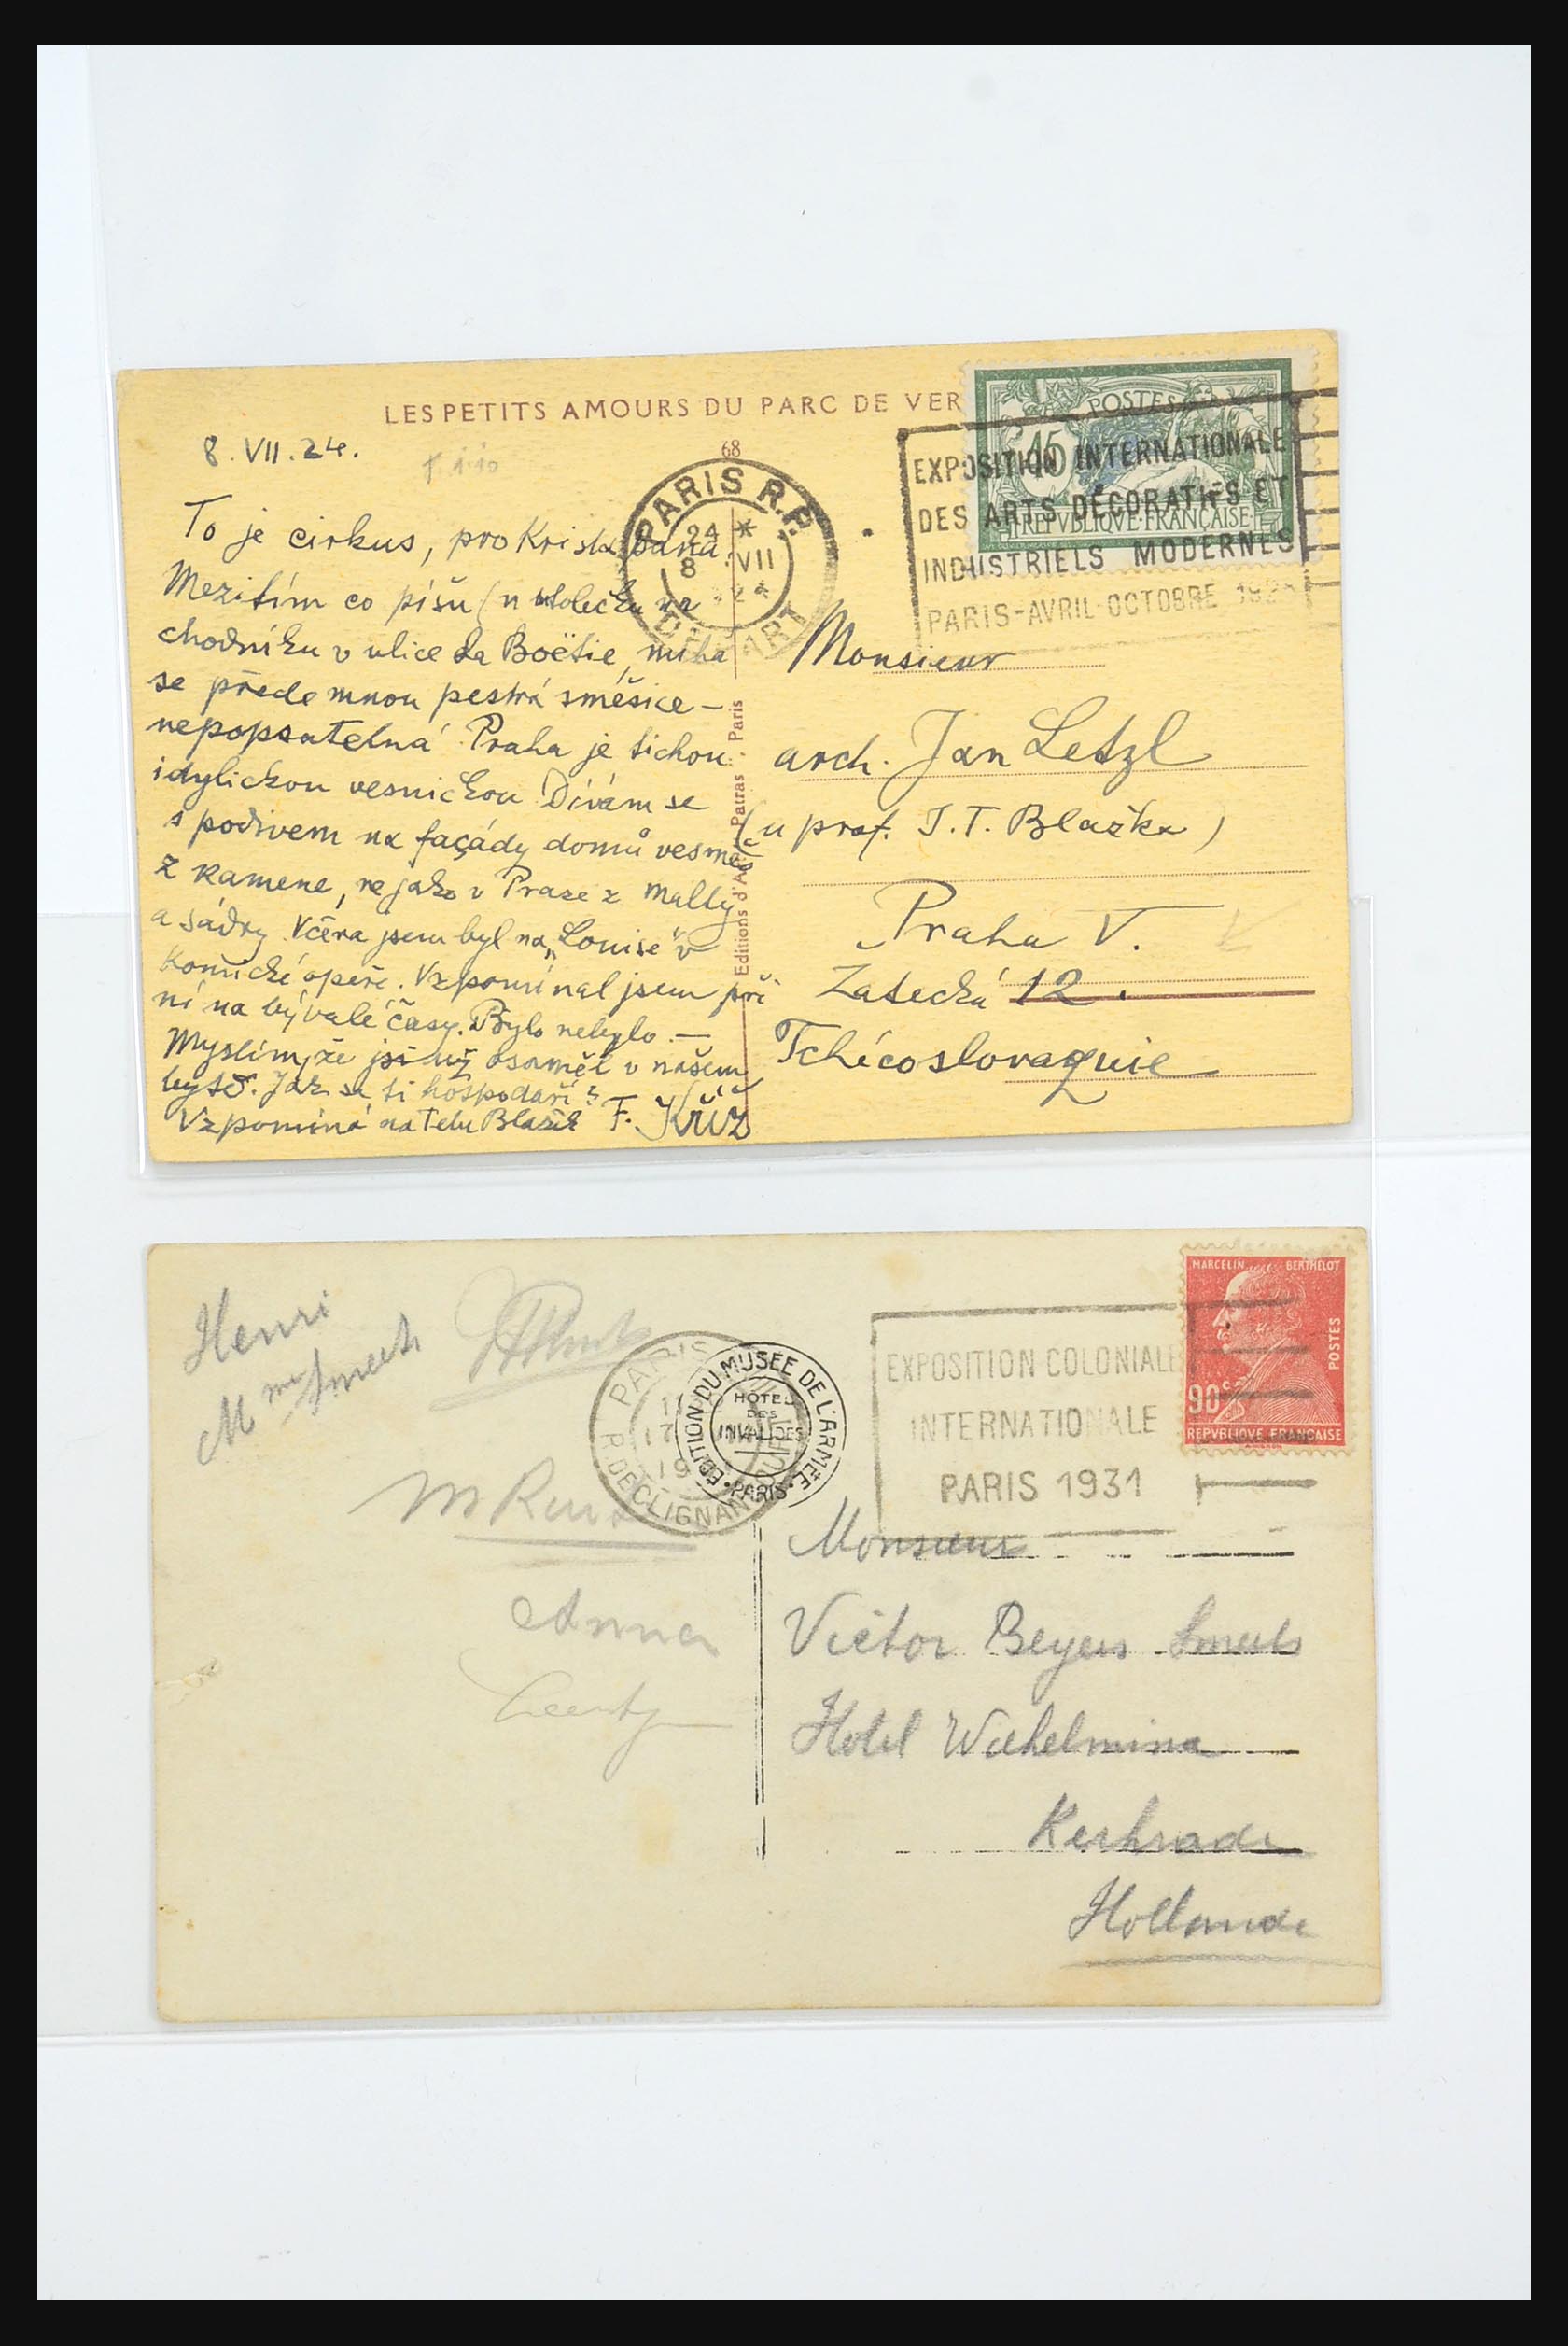 LES PETITS AMOURS DU PARC DE VER
68
8.VII.24.
To je cirkus, pro Krista Pána.
Mezitím co píšu (u stolečku na
chodníku v ulice La Boëtie, míhá
se přede mnou pestrá směsice —
nepopsatelná. Praha je tichou
idylickou vesničkou. Dívám se
s podivem na façády domů vesměs
z kamene, ne jako v Praze z malty
a sádry. Včera jsem byl na „Louise" v
Komické opeře. Vzpomínal jsem při
ní na bývalé časy. Bylo nebylo. —
Myslím, že jsi už osaměl v našem
bytě. Jak se ti hospodaří?
Vzpomíná na Tebe Blažek F. Kříž
PARIS R.P.
24 *
8 VII
24
DEPART
POSTES
45
REPVBLIQVE FRANÇAISE
EXPOSITION INTERNATIONALE
DES ARTS DÉCORATIFS ET
INDUSTRIELS MODERNES
PARIS-AVRIL-OCTOBRE 1925
Editions d'Art Patras. Paris
Monsieur
arch. Jan Letzl
(u prof. J.T. Blažka)
Praha V.
Zatecká 12.
Tchécoslovaquie
Henri
Mme Smeets
M
Anna
PARIS
17
19
R. DE CLIGNANCOURT
EDITION DU MUSEE DE L'ARMÉE
HOTEL
DES
INVALIDES
PARIS
EXPOSITION COLONIALE
INTERNATIONALE
PARIS 1931
MARCELIN BERTHELOT
POSTES
90c
REPVBLIQVE FRANÇAISE
Monsieur
Victor Beyers Smeets
Hotel Wilhelmina
Kerkrade
Hollande